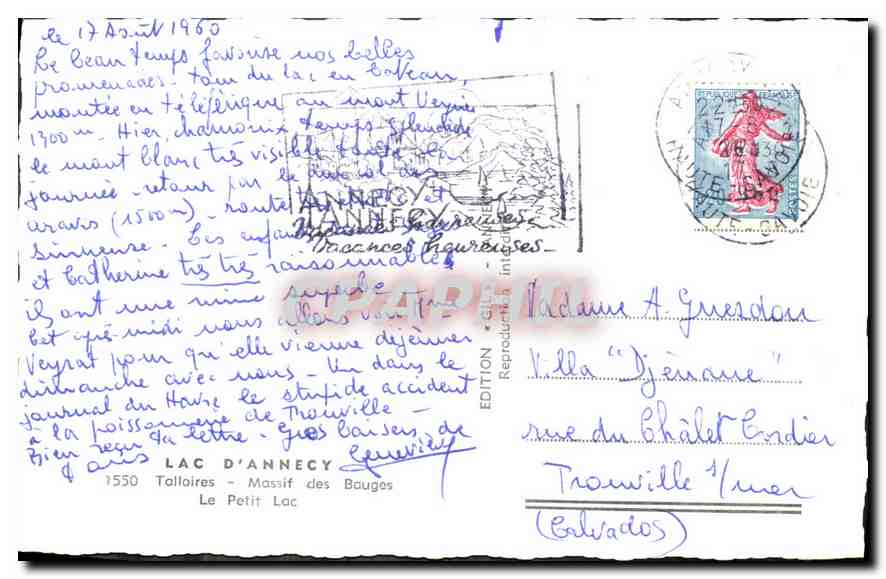 le 17 Août 1960
Le beau temps favorise nos belles
promenades - tour du lac en bateau,
montée en téléférique au mont Veyrier
1300m - Hier, chamonix temps splendide
le mont blanc très visible toute la
journée - retour par le col des
aravis (1500m) - route et
sinueuse - Les enfants
et Catherine très très raisonnables
ils ont une mine superbe
Cet après-midi nous allons
Veyrat pour qu'elle vienne déjeuner
dimanche avec nous - Vu dans le
journal du Havre le stupide accident
à la poissonnerie de Trouville -
Bien reçu ta lettre - Gros baisers de
Geneviève
LAC D'ANNECY
1550 Talloires - Massif des Bauges
Le Petit Lac
ANNECY
ANNECY
Vacances heureuses
Vacances heureuses
CPAPHIL
EDITION "GIL" -
Reproduction interdite
REPUBLIQUE FRANÇAISE
POSTES
HAUTE-SAVOIE
HAUTE-SAVOIE
Madame A. Guesdon
Villa "Djénane"
rue du Châlet Cordier
Trouville s/mer
(Calvados)